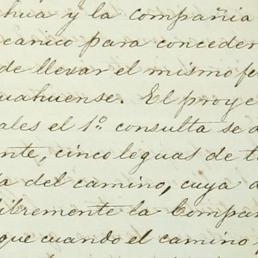 hua y la compañia
canico para conceder
de llevar el mismo fe
uahuense. El proye
ales el 1º consulta se a
nte, cinco leguas de t
a del camino, cuya a
libremente la Compan
que cuando el camino